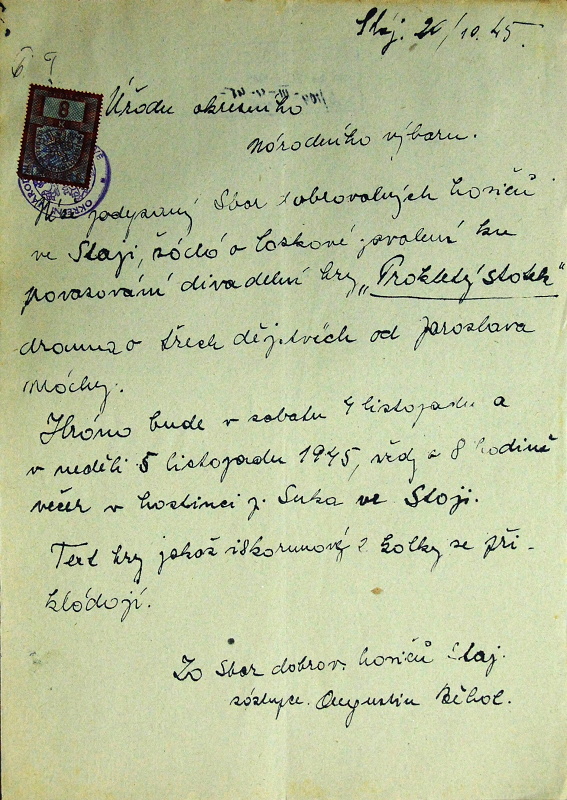 Stáj. 26/10.45.
8
Úřadu okresního
národního výboru.
podepsaný Sbor dobrovolných hasičů
ve Stáji, žádá o laskavé povolení ku
pořádání divadelní hry „Prokletý statek"
drama o třech dějstvích od Jaroslava
Máchy.
Hráno bude v sobotu 4 listopadu a
v neděli 5 listopadu 1945, vždy o 8 hodině
večer v hostinci p. Suka ve Stáji.
Text hry jakož i 8korunový kolky se při-
kládají.
Za Sbor dobrov. hasičů Stáj.
zástupce. Augustin Běhal.